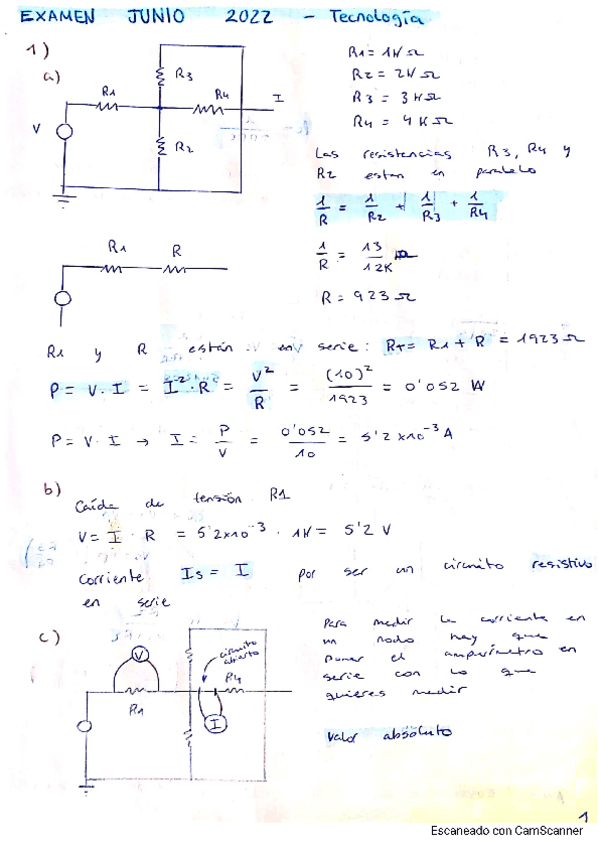 EXAMEN JUNIO 2022 - Tecnología
1)
a)
R1 R3 R4 I
V R2
R1 = 1KΩ
R2 = 2KΩ
R3 = 3KΩ
R4 = 4KΩ
Las resistencias R3, R4 y
R2 estan en paralelo
1/R = 1/R2 + 1/R3 + 1/R4
1/R = 13/12K
R = 923 Ω
R1 R
R1 y R están en serie: RT = R1 + R = 1923 Ω
P = V · I = I² · R = V²/R = (10)²/1923 = 0'052 W
P = V · I → I = P/V = 0'052/10 = 5'2 x10⁻³ A
b)
Caída de tensión R1
V = I · R = 5'2x10⁻³ · 1K = 5'2 V
Corriente Is = I por ser un circuito resistivo
en serie
c)
V circuito
abierto
R1 R4 I
Para medir la corriente en
un nodo hay que
poner el amperímetro en
serie con lo que
quieres medir
Valor absoluto
1
Escaneado con CamScanner